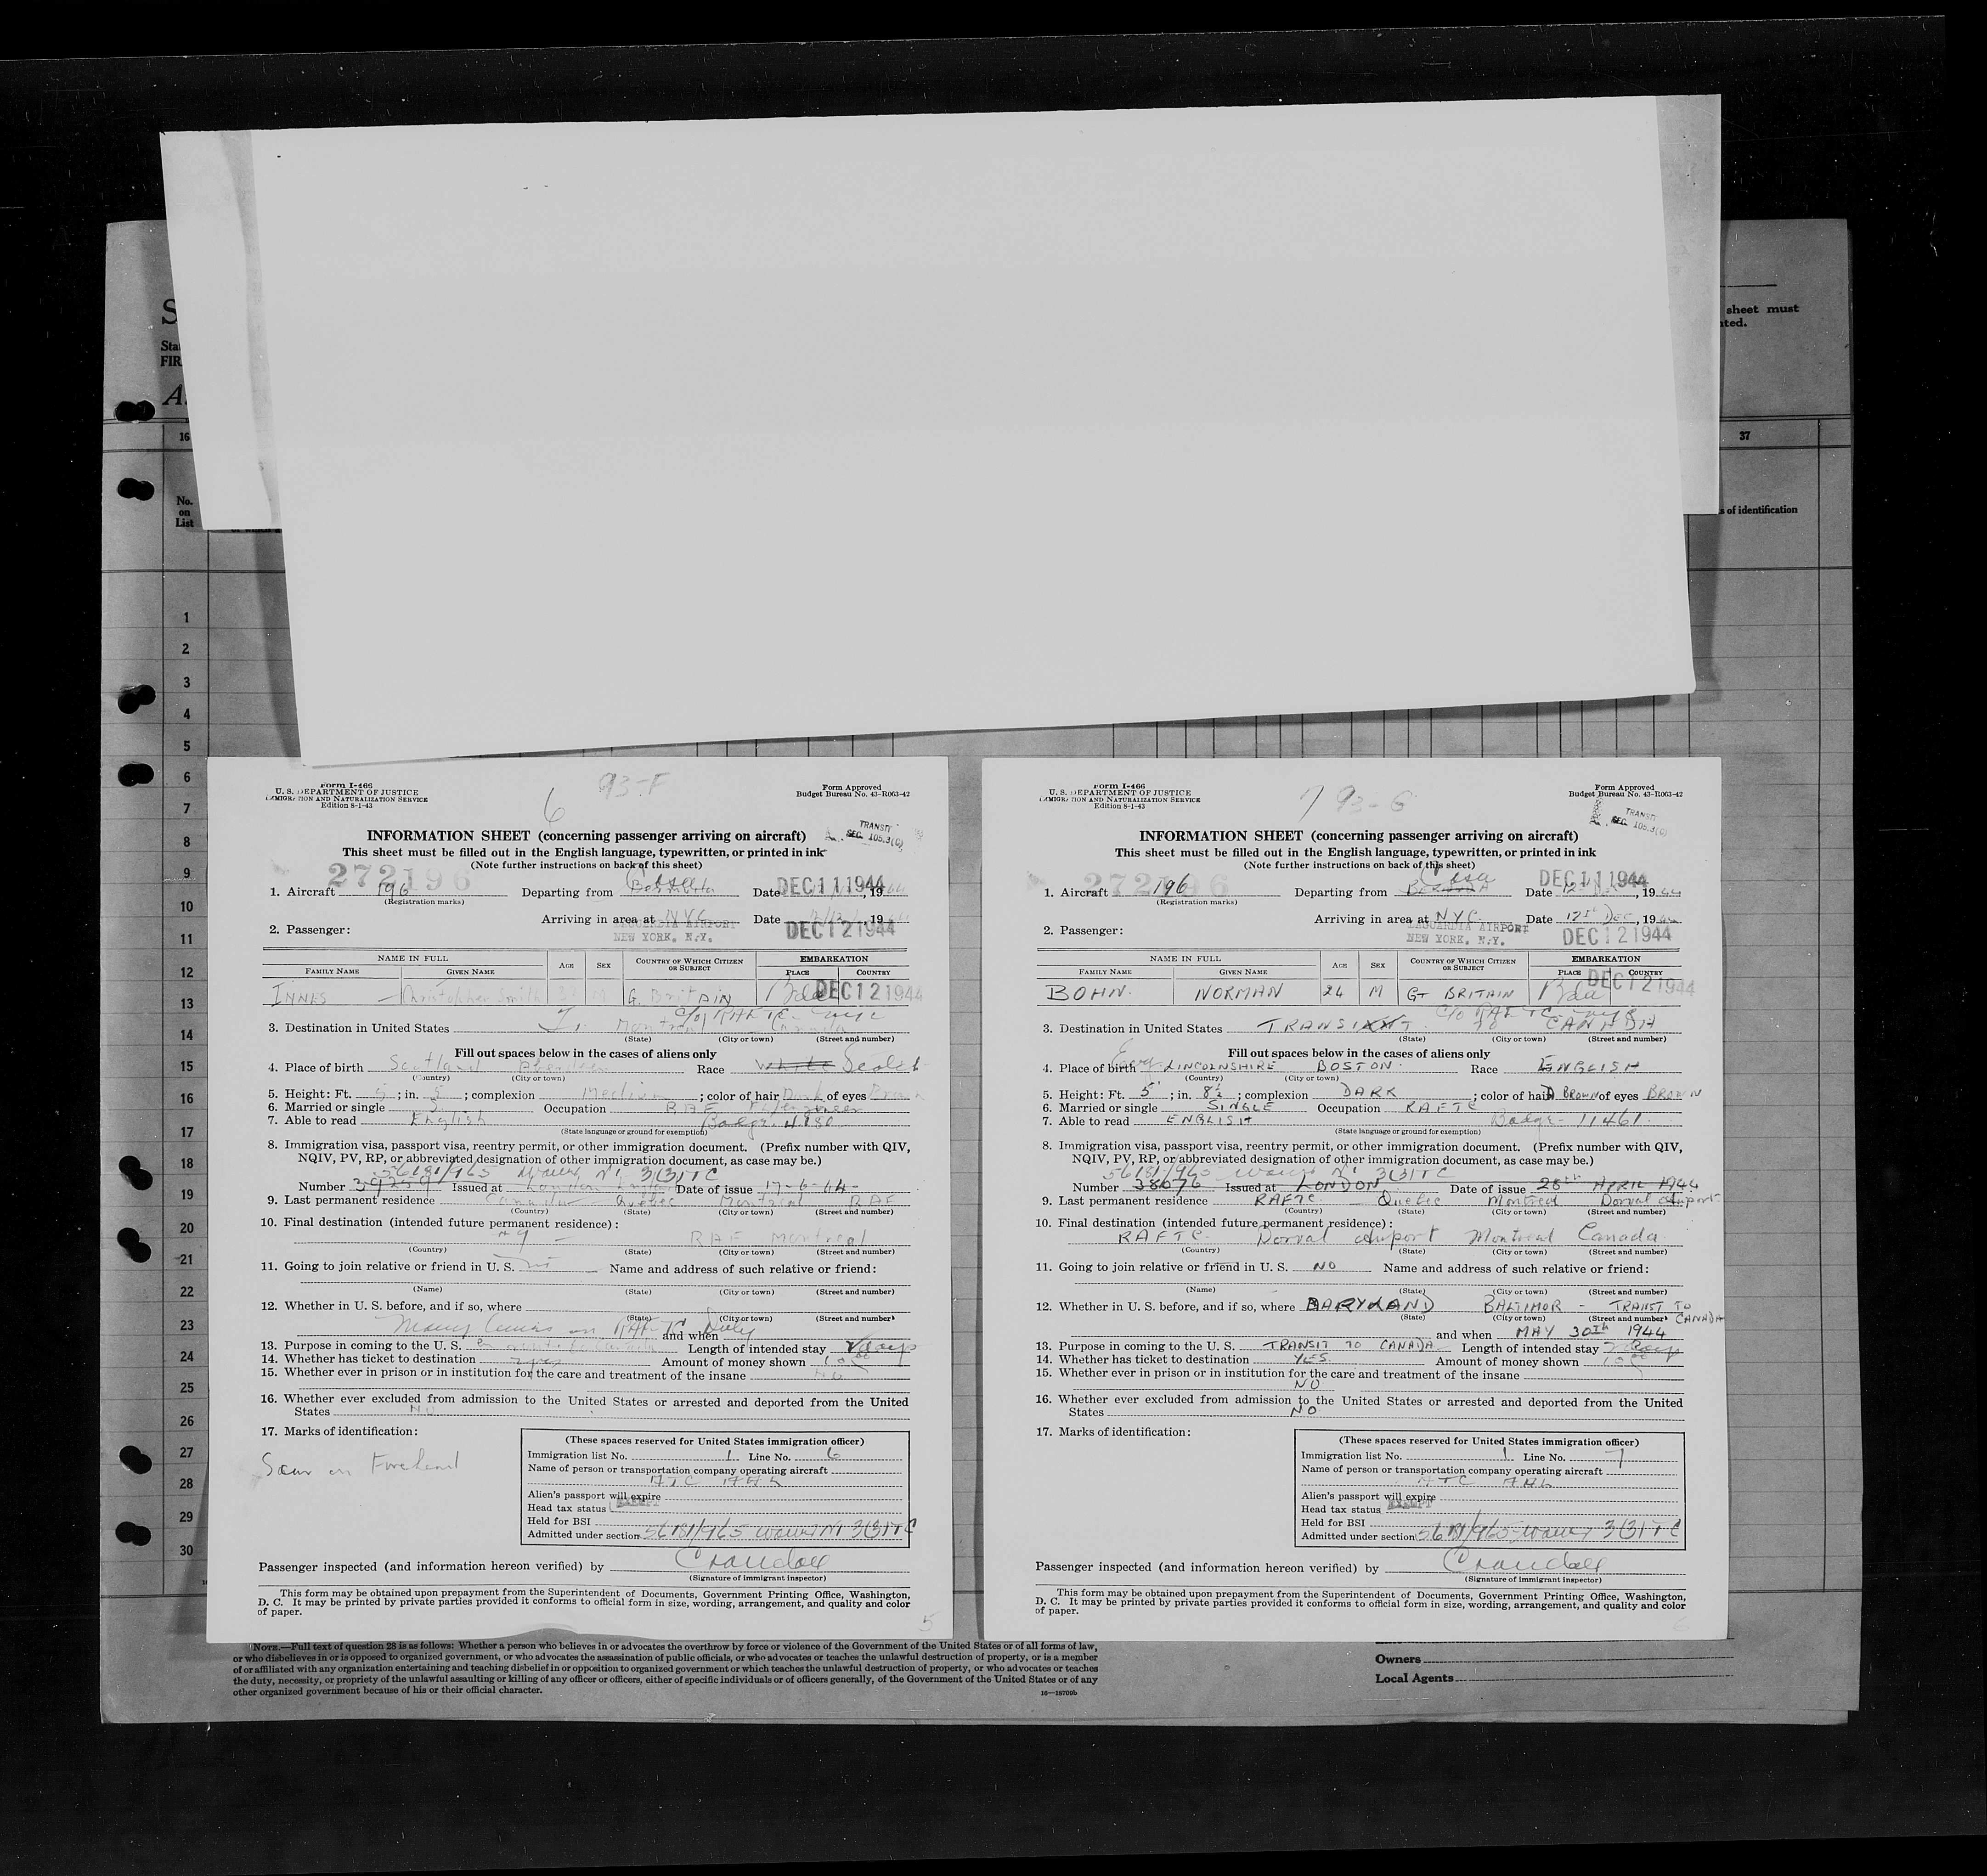 S
Sta
FIR
A
sheet must
ted.
16
37
No.
on
List
s of identification
1
2
3
4
5
6
7
8
9
10
11
12
13
14
15
16
17
18
19
20
21
22
23
24
25
26
27
28
29
30
6 93-F
Form I-466
U. S. DEPARTMENT OF JUSTICE
IMMIGRATION AND NATURALIZATION SERVICE
Edition 8-1-43
Form Approved
Budget Bureau No. 43-R063-42
TRANSIT
SEC. 105.3(C)
INFORMATION SHEET (concerning passenger arriving on aircraft)
This sheet must be filled out in the English language, typewritten, or printed in ink
(Note further instructions on back of this sheet)
272196
1. Aircraft 196 Departing from Casa Date DEC 11 1944, 19
(Registration marks)
Arriving in area at NYC Date 12/12, 19
LAGUARDIA AIRPORT
NEW YORK, N.Y.
DEC 12 1944
2. Passenger:
NAME IN FULL
FAMILY NAME GIVEN NAME AGE SEX COUNTRY OF WHICH CITIZEN OR SUBJECT EMBARKATION PLACE COUNTRY
INNES Christopher Smith M G. BRITAIN DEC 12 1944
c/o RAFTC NYC
3. Destination in United States Montreal Canada
(State) (City or town) (Street and number)
Fill out spaces below in the cases of aliens only
4. Place of birth Scotland Aberdeen Race White Scotch
(Country) (City or town)
5. Height: Ft. 5; in. 5; complexion Medium; color of hair Dark of eyes Brown
6. Married or single S Occupation RAF F/engineer
7. Able to read English Badge 4830
(State language or ground for exemption)
8. Immigration visa, passport visa, reentry permit, or other immigration document. (Prefix number with QIV,
NQIV, PV, RP, or abbreviated designation of other immigration document, as case may be.)
56181/965 Waiver N1 3(3)TC
Number 39259 Issued at London England Date of issue 17-6-44
9. Last permanent residence Canada Quebec Montreal RAF
(Country) (State) (City or town) (Street and number)
10. Final destination (intended future permanent residence):
RAF Montreal
(Country) (State) (City or town) (Street and number)
11. Going to join relative or friend in U. S. Name and address of such relative or friend:
(Name) (State) (City or town) (Street and number)
12. Whether in U. S. before, and if so, where
(State) (City or town) (Street and number)
Many times on RAFTC Duty and when
13. Purpose in coming to the U. S. En route to Canada Length of intended stay days
14. Whether has ticket to destination yes Amount of money shown
15. Whether ever in prison or in institution for the care and treatment of the insane NO
16. Whether ever excluded from admission to the United States or arrested and deported from the United
States NO
17. Marks of identification:
Scar on Forehead
(These spaces reserved for United States immigration officer)
Immigration list No. 1 Line No. 6
Name of person or transportation company operating aircraft
ATC
Alien's passport will expire
Head tax status EXEMPT
Held for BSI
Admitted under section 56181/965 Waiver N1 3(3)TC
Passenger inspected (and information hereon verified) by Crandall
(Signature of immigrant inspector)
This form may be obtained upon prepayment from the Superintendent of Documents, Government Printing Office, Washington,
D. C. It may be printed by private parties provided it conforms to official form in size, wording, arrangement, and quality and color
of paper.
5
7 93-G
Form I-466
U. S. DEPARTMENT OF JUSTICE
IMMIGRATION AND NATURALIZATION SERVICE
Edition 8-1-43
Form Approved
Budget Bureau No. 43-R063-42
TRANSIT
SEC. 105.3(C)
INFORMATION SHEET (concerning passenger arriving on aircraft)
This sheet must be filled out in the English language, typewritten, or printed in ink
(Note further instructions on back of this sheet)
272196
1. Aircraft 196 Departing from Casa Date DEC 11 1944, 1944
(Registration marks)
Arriving in area at NYC Date 12th Dec, 1944
LAGUARDIA AIRPORT
NEW YORK, N.Y.
DEC 12 1944
2. Passenger:
NAME IN FULL
FAMILY NAME GIVEN NAME AGE SEX COUNTRY OF WHICH CITIZEN OR SUBJECT EMBARKATION PLACE COUNTRY
BOHN. NORMAN 24 M GT BRITAIN DEC 12 1944
c/o RAFTC NYC
3. Destination in United States TRANSIT TO CANADA
(State) (City or town) (Street and number)
Fill out spaces below in the cases of aliens only
4. Place of birth Eng LINCOLNSHIRE BOSTON. Race ENGLISH
(Country) (City or town)
5. Height: Ft. 5'; in. 8½; complexion DARK; color of hair D BROWN of eyes BROWN
6. Married or single SINGLE Occupation RAFTC
7. Able to read ENGLISH Badge-11461.
(State language or ground for exemption)
8. Immigration visa, passport visa, reentry permit, or other immigration document. (Prefix number with QIV,
NQIV, PV, RP, or abbreviated designation of other immigration document, as case may be.)
56181/965 Waiver N1 3(3)TC
Number 38076 Issued at LONDON Date of issue 28th APRIL 1944
9. Last permanent residence RAFTC Quebec Montreal Dorval Airport
(Country) (State) (City or town) (Street and number)
10. Final destination (intended future permanent residence):
RAFTC Dorval Airport Montreal Canada
(Country) (State) (City or town) (Street and number)
11. Going to join relative or friend in U. S. NO Name and address of such relative or friend:
(Name) (State) (City or town) (Street and number)
12. Whether in U. S. before, and if so, where MARYLAND BALTIMOR - TRANST TO CANADA
(State) (City or town) (Street and number)
and when MAY 30th 1944
13. Purpose in coming to the U. S. TRANSIT TO CANADA Length of intended stay days
14. Whether has ticket to destination YES Amount of money shown
15. Whether ever in prison or in institution for the care and treatment of the insane
NO
16. Whether ever excluded from admission to the United States or arrested and deported from the United
States NO
17. Marks of identification:
(These spaces reserved for United States immigration officer)
Immigration list No. 1 Line No. 7
Name of person or transportation company operating aircraft
ATC
Alien's passport will expire
Head tax status EXEMPT
Held for BSI
Admitted under section 56181/965 Waiver 3(3)TC
Passenger inspected (and information hereon verified) by Crandall
(Signature of immigrant inspector)
This form may be obtained upon prepayment from the Superintendent of Documents, Government Printing Office, Washington,
D. C. It may be printed by private parties provided it conforms to official form in size, wording, arrangement, and quality and color
of paper.
6
NOTE.—Full text of question 28 is as follows: Whether a person who believes in or advocates the overthrow by force or violence of the Government of the United States or of all forms of law,
or who disbelieves in or is opposed to organized government, or who advocates the assassination of public officials, or who advocates or teaches the unlawful destruction of property, or is a member
of or affiliated with any organization entertaining and teaching disbelief in or opposition to organized government or which teaches the unlawful destruction of property, or who advocates or teaches
the duty, necessity, or propriety of the unlawful assaulting or killing of any officer or officers, either of specific individuals or of officers generally, of the Government of the United States or of any
other organized government because of his or their official character.
16—18700b
Owners
Local Agents